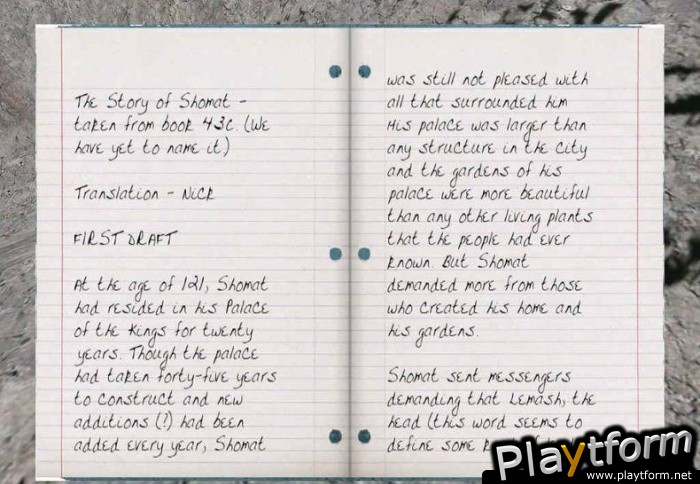 The Story of Shomat -
taken from book 43C. (We
have yet to name it)
Translation - Nick
FIRST DRAFT
At the age of 121, Shomat
had resided in his Palace
of the Kings for twenty
years. Though the palace
had taken forty-five years
to construct and new
additions (?) had been
added every year, Shomat
was still not pleased with
all that surrounded him
His palace was larger than
any structure in the city
and the gardens of his
palace were more beautiful
than any other living plants
that the people had ever
known. But Shomat
demanded more from those
who created his home and
his gardens.
Shomat sent messengers
demanding that Lemash, the
head (this word seems to
define some
Playtform
www.playtform.net